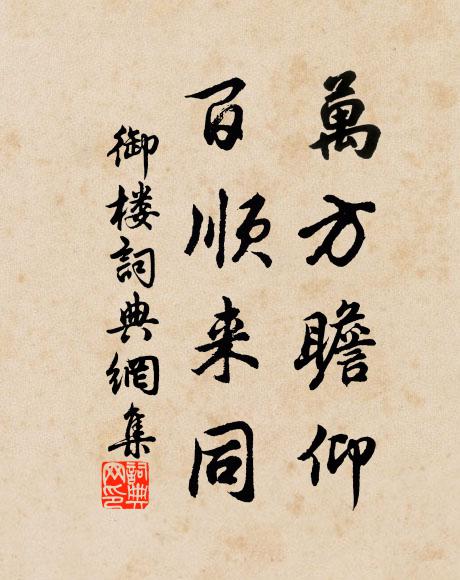 萬方瞻仰
百順来同
御楼詞典網集
詞典网印